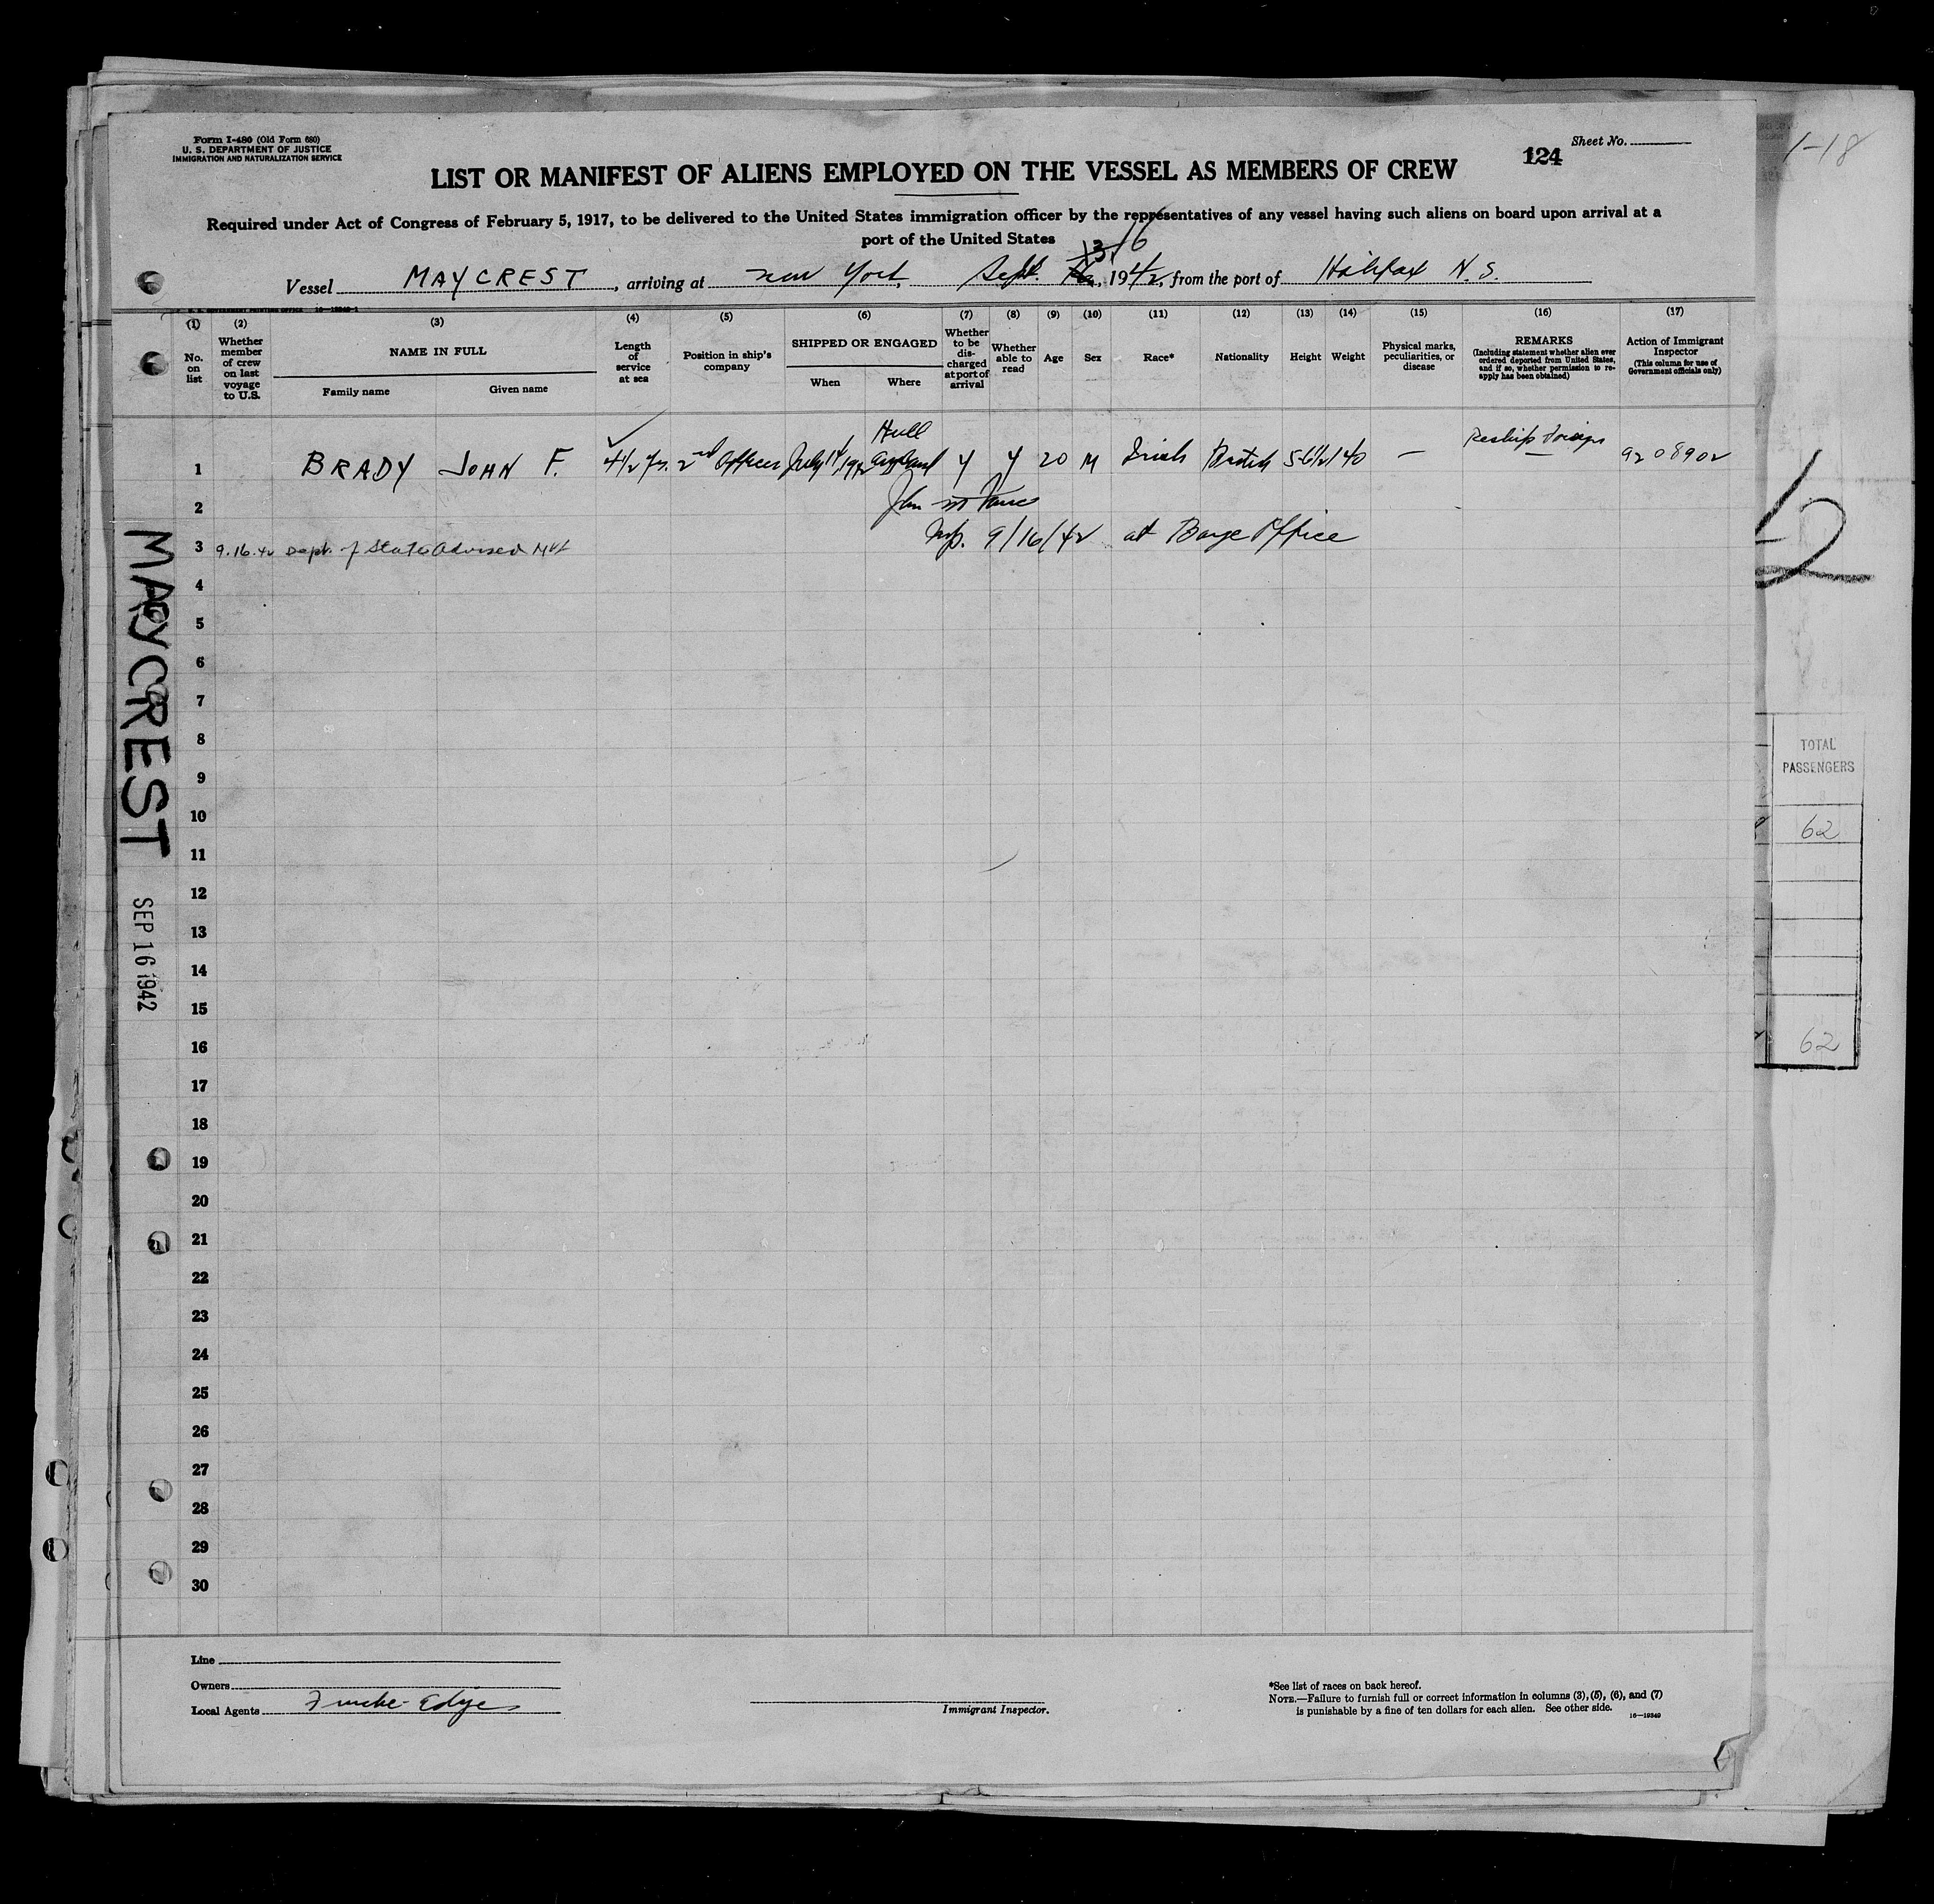 Form I-480 (Old Form 680)
U. S. DEPARTMENT OF JUSTICE
IMMIGRATION AND NATURALIZATION SERVICE
Sheet No.
124
1-18
LIST OR MANIFEST OF ALIENS EMPLOYED ON THE VESSEL AS MEMBERS OF CREW
Required under Act of Congress of February 5, 1917, to be delivered to the United States immigration officer by the representatives of any vessel having such aliens on board upon arrival at a
port of the United States
13 16
Vessel MAYCREST, arriving at New York, Sept. , 1942, from the port of Halifax N.S.
(1) (2) (3) (4) (5) (6) (7) (8) (9) (10) (11) (12) (13) (14) (15) (16) (17)
No. on list
Whether member of crew on last voyage to U.S.
NAME IN FULL
Family name Given name
Length of service at sea
Position in ship's company
SHIPPED OR ENGAGED
When Where
Whether to be discharged at port of arrival
Whether able to read
Age
Sex
Race*
Nationality
Height
Weight
Physical marks, peculiarities, or disease
REMARKS
(Including statement whether alien ever ordered deported from United States, and if so, whether permission to reapply has been obtained)
Action of Immigrant Inspector
(This column for use of Government officials only)
1 BRADY JOHN F. 4 1/2 yrs. 2nd Officer July 14, 1942 Hull England Y Y 20 M Irish British 5-6 1/2 140 — Reship foreign 9208902
2
3 9.16.42 Dept. of State Advised
Insp. 9/16/42 at Barge Office
4
5
6
7
8
9
10
11
12
13
14
15
16
17
18
19
20
21
22
23
24
25
26
27
28
29
30
MAYCREST
SEP 16 1942
12
TOTAL
PASSENGERS
62
62
Line
Owners
Local Agents Funche-Edye
Immigrant Inspector.
*See list of races on back hereof.
NOTE.—Failure to furnish full or correct information in columns (3), (5), (6), and (7)
is punishable by a fine of ten dollars for each alien. See other side.
16—19349